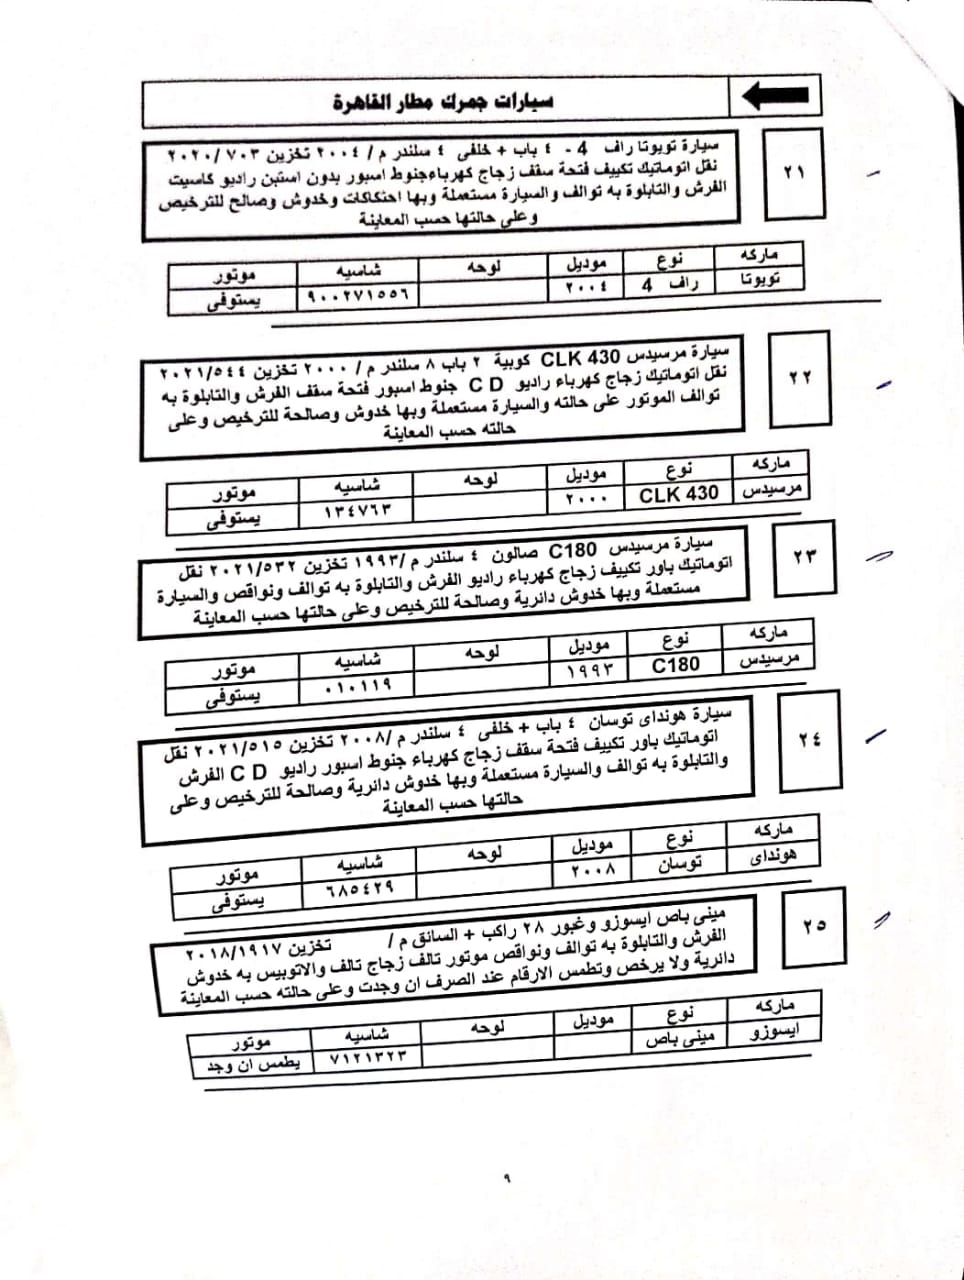 سيارات جمرك مطار القاهرة
٢١
سيارة تويوتا راف 4 - ٤ باب + خلفى ٤ سلندر م / ٢٠٠٤ تخزين ٧٠٣ /٢٠٢٠
نقل اتوماتيك تكييف فتحة سقف زجاج كهرباءجنوط اسبور بدون استبن راديو كاسيت
الفرش والتابلوة به توالف والسيارة مستعملة وبها احتكاكات وخدوش وصالح للترخيص
وعلى حالتها حسب المعاينة
ماركه نوع موديل لوحه شاسيه موتور
تويوتا راف 4 ٢٠٠٤ ٩٠٠٢٧١٥٥٦ يستوفى
٢٢
سيارة مرسيدس CLK 430 كوبية ٢ باب ٨ سلندر م / ٢٠٠٠ تخزين ٢٠٢١/٥٤٤
نقل اتوماتيك زجاج كهرباء راديو C D جنوط اسبور فتحة سقف الفرش والتابلوة به
توالف الموتور على حالته والسيارة مستعملة وبها خدوش وصالحة للترخيص وعلى
حالته حسب المعاينة
ماركه نوع موديل لوحه شاسيه موتور
مرسيدس CLK 430 ٢٠٠٠ ١٣٤٧٦٣ يستوفى
٢٣
سيارة مرسيدس C180 صالون ٤ سلندر م /١٩٩٣ تخزين ٢٠٢١/٥٣٢ نقل
اتوماتيك باور تكييف زجاج كهرباء راديو الفرش والتابلوة به توالف ونواقص والسيارة
مستعملة وبها خدوش دائرية وصالحة للترخيص وعلى حالتها حسب المعاينة
ماركه نوع موديل لوحه شاسيه موتور
مرسيدس C180 ١٩٩٣ ٠١٠١١٩ يستوفى
٢٤
سيارة هونداى توسان ٤ باب + خلفى ٤ سلندر م /٢٠٠٨ تخزين ٢٠٢١/٥١٥ نقل
اتوماتيك باور تكييف فتحة سقف زجاج كهرباء جنوط اسبور راديو C D الفرش
والتابلوة به توالف والسيارة مستعملة وبها خدوش دائرية وصالحة للترخيص وعلى
حالتها حسب المعاينة
ماركه نوع موديل لوحه شاسيه موتور
هونداى توسان ٢٠٠٨ ٦٨٥٤٢٩ يستوفى
٢٥
مينى باص ايسوزو وغبور ٢٨ راكب + السانق م / تخزين ٢٠١٨/١٩١٧
الفرش والتابلوة به توالف ونواقص موتور تالف زجاج تالف والاتوبيس به خدوش
دائرية ولا يرخص وتطمس الارقام عند الصرف ان وجدت وعلى حالته حسب المعاينة
ماركه نوع موديل لوحه شاسيه موتور
ايسوزو مينى باص ٧١٢١٣٢٣ يطمس ان وجد
٩